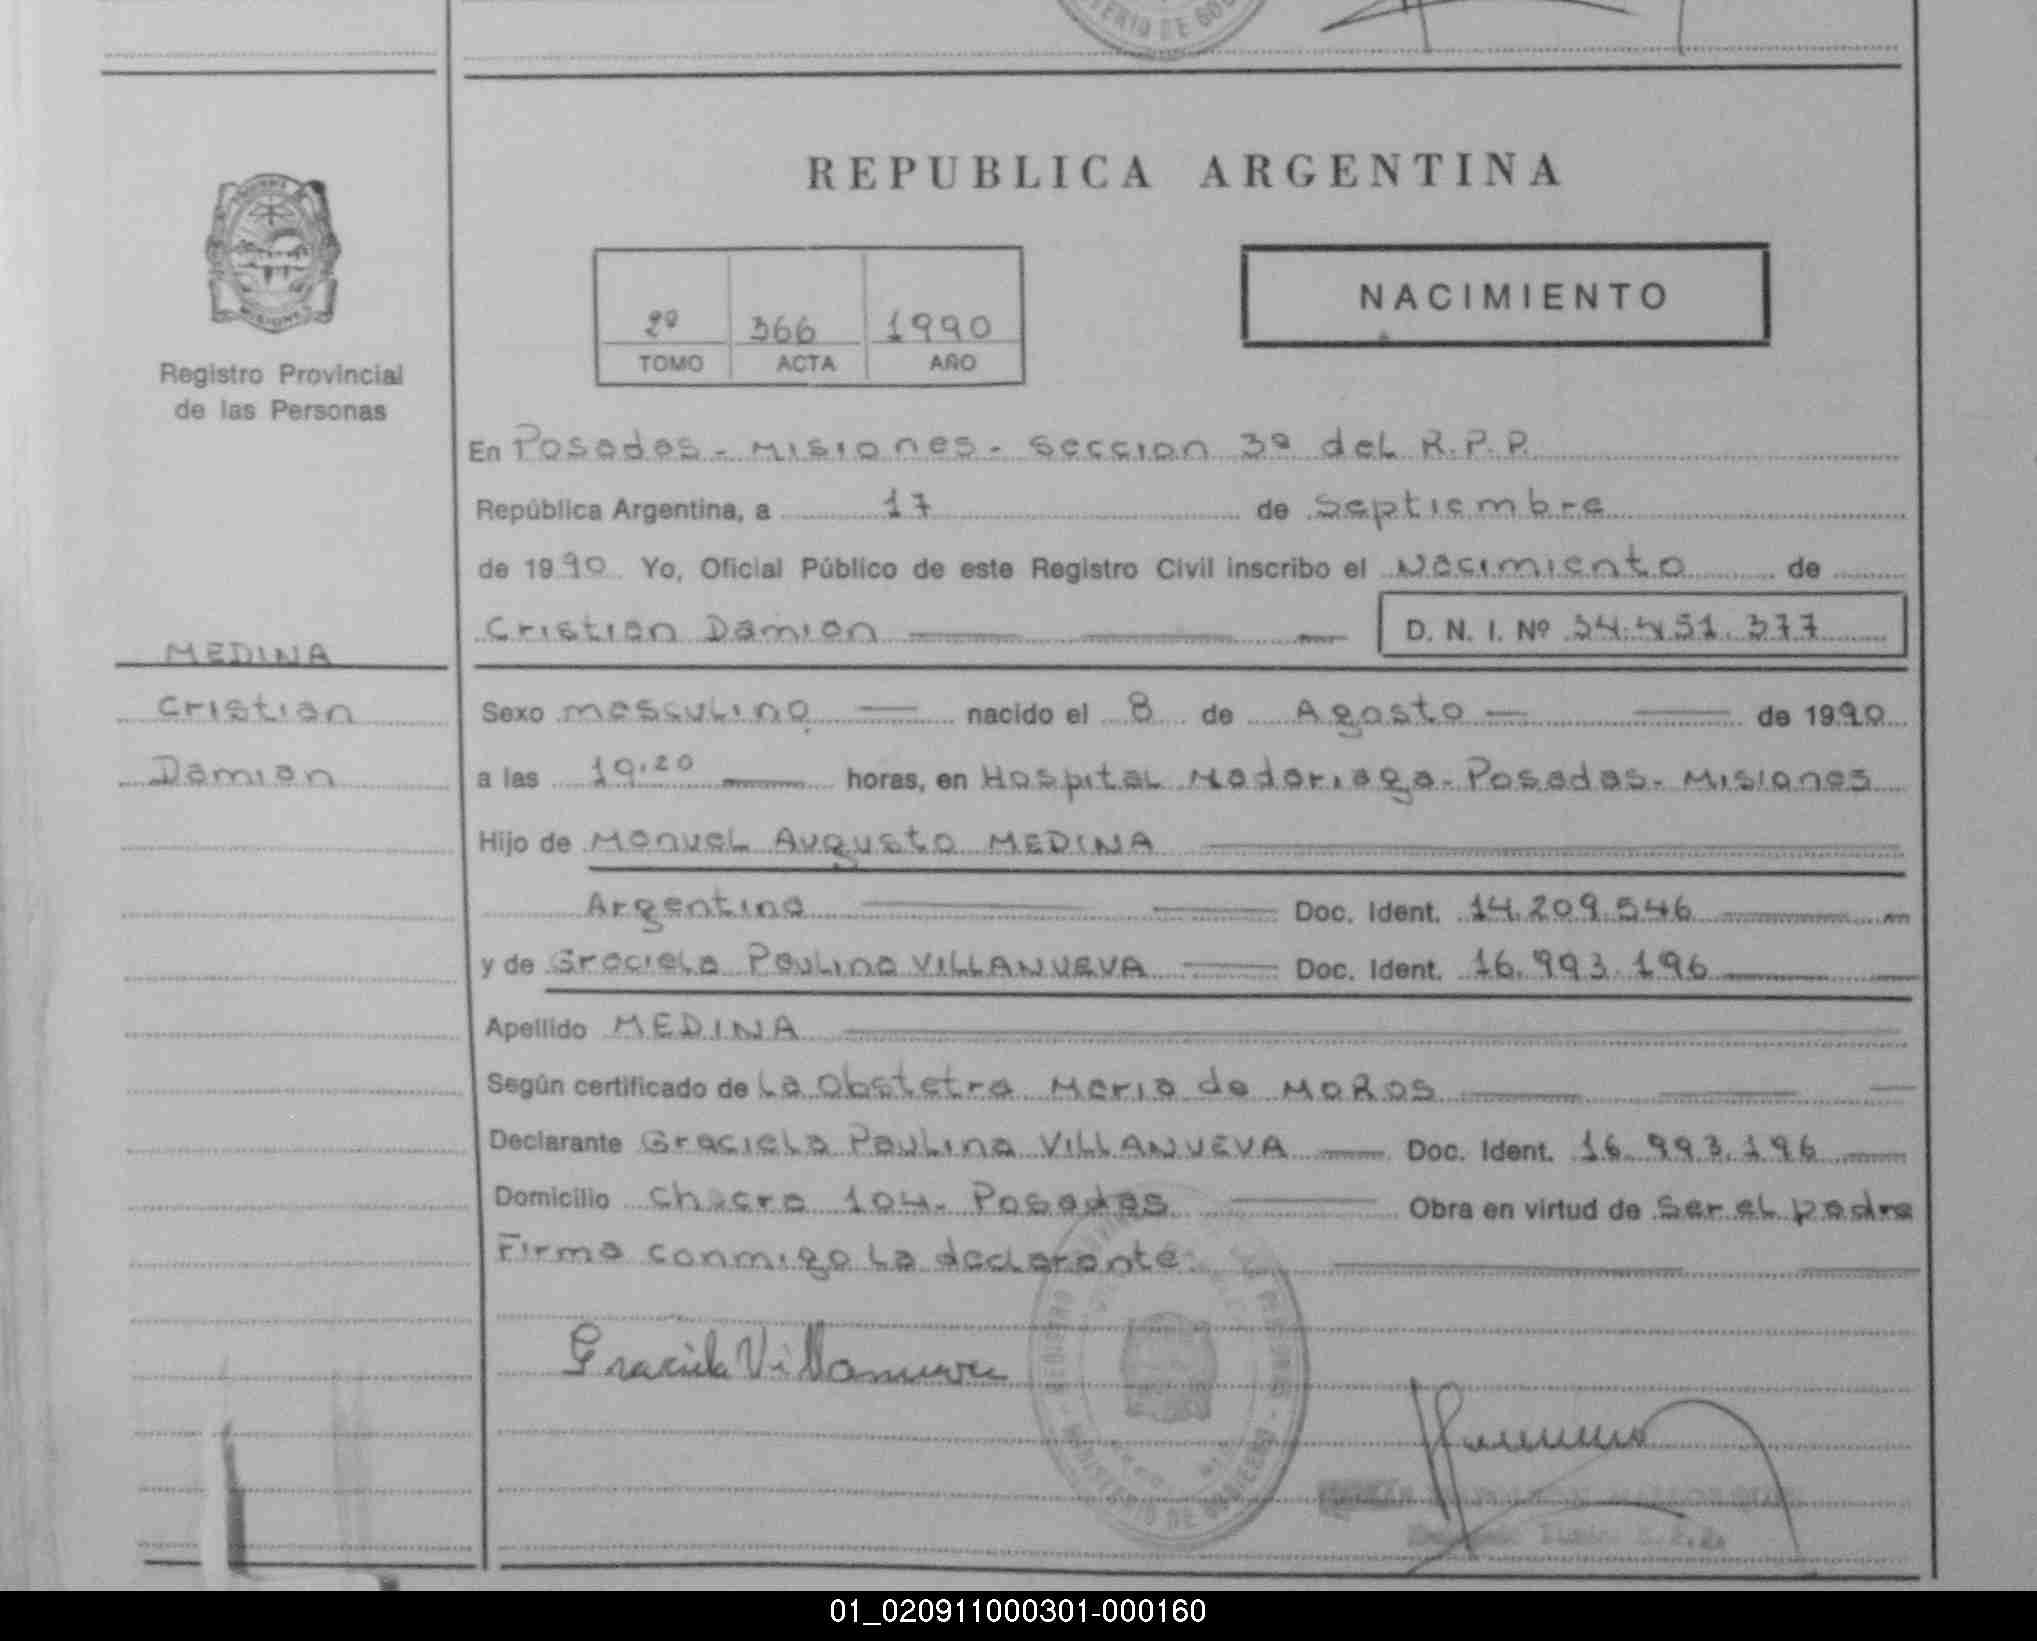 TERIO DE GOB
REPUBLICA ARGENTINA
MISIONES
Registro Provincial
de las Personas
2º 366 1990
TOMO ACTA AÑO
NACIMIENTO
En Posadas - Misiones - Seccion 3ª del R.P.P.
República Argentina, a 17 de Septiembre
de 1990 Yo, Oficial Público de este Registro Civil inscribo el Nacimiento de
Cristian Damian D. N. I. Nº 34.451.377
MEDINA
Cristian
Damian
Sexo masculino nacido el 8 de Agosto de 1990
a las 19.20 horas, en Hospital Madariaga - Posadas - Misiones
Hijo de Manuel Augusto MEDINA
Argentina Doc. Ident. 14.209.546
y de Graciela Paulina VILLANUEVA Doc. Ident. 16.993.196
Apellido MEDINA
Según certificado de La Obstetra Maria de MOROS
Declarante Graciela Paulina VILLANUEVA Doc. Ident. 16.993.196
Domicilio Chacra 104 - Posadas Obra en virtud de ser el padre
Firma conmigo la declarante.
Graciela Villanueva
REGISTRO
MINISTERIO DE GOBIERNO
01_020911000301-000160